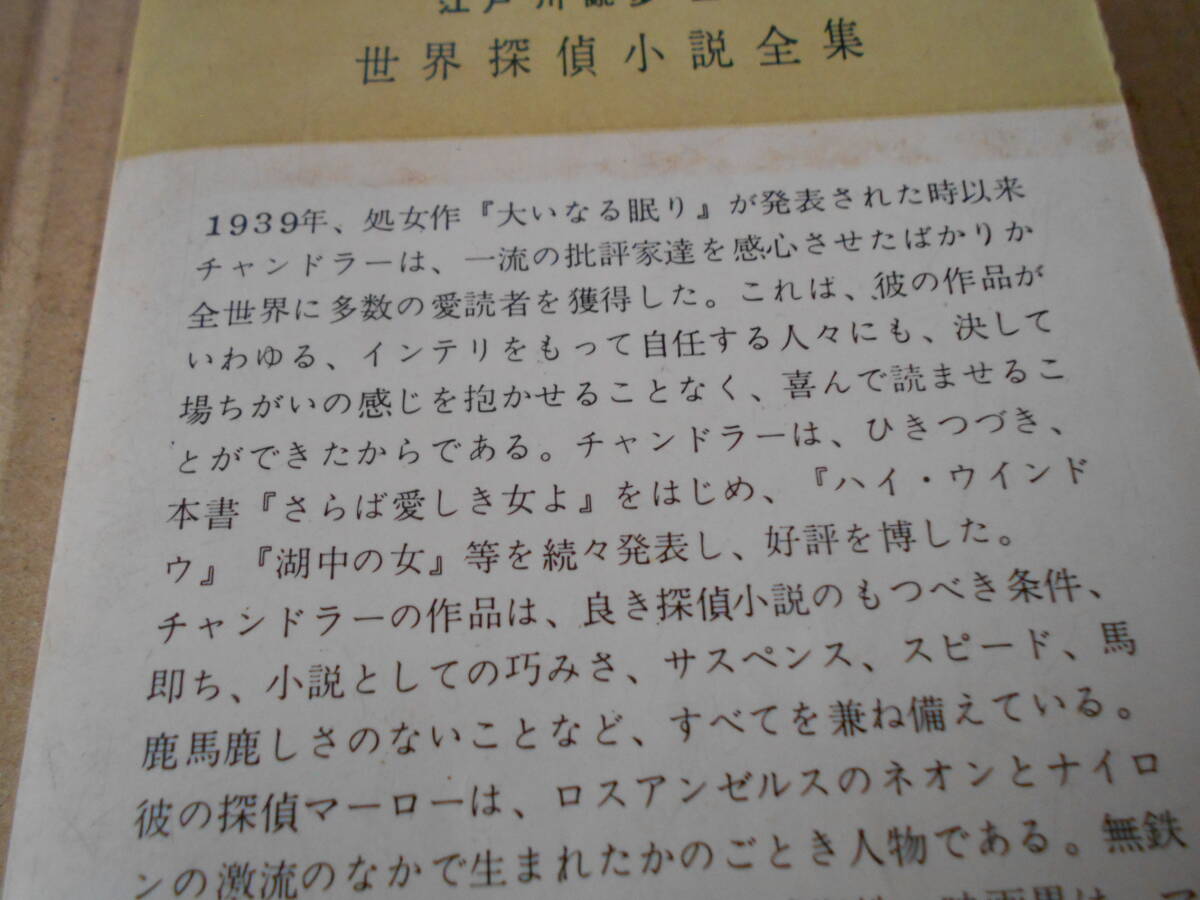 江戸川乱歩
世界探偵小説全集
1939年、処女作『大いなる眠り』が発表された時以来
チャンドラーは、一流の批評家達を感心させたばかりか
全世界に多数の愛読者を獲得した。これは、彼の作品が
いわゆる、インテリをもって自任する人々にも、決して
場ちがいの感じを抱かせることなく、喜んで読ませるこ
とができたからである。チャンドラーは、ひきつづき、
本書『さらば愛しき女よ』をはじめ、『ハイ・ウインド
ウ』『湖中の女』等を続々発表し、好評を博した。
チャンドラーの作品は、良き探偵小説のもつべき条件、
即ち、小説としての巧みさ、サスペンス、スピード、馬
鹿馬鹿しさのないことなど、すべてを兼ね備えている。
彼の探偵マーローは、ロスアンゼルスのネオンとナイロ
ンの激流のなかで生まれたかのごとき人物である。無鉄